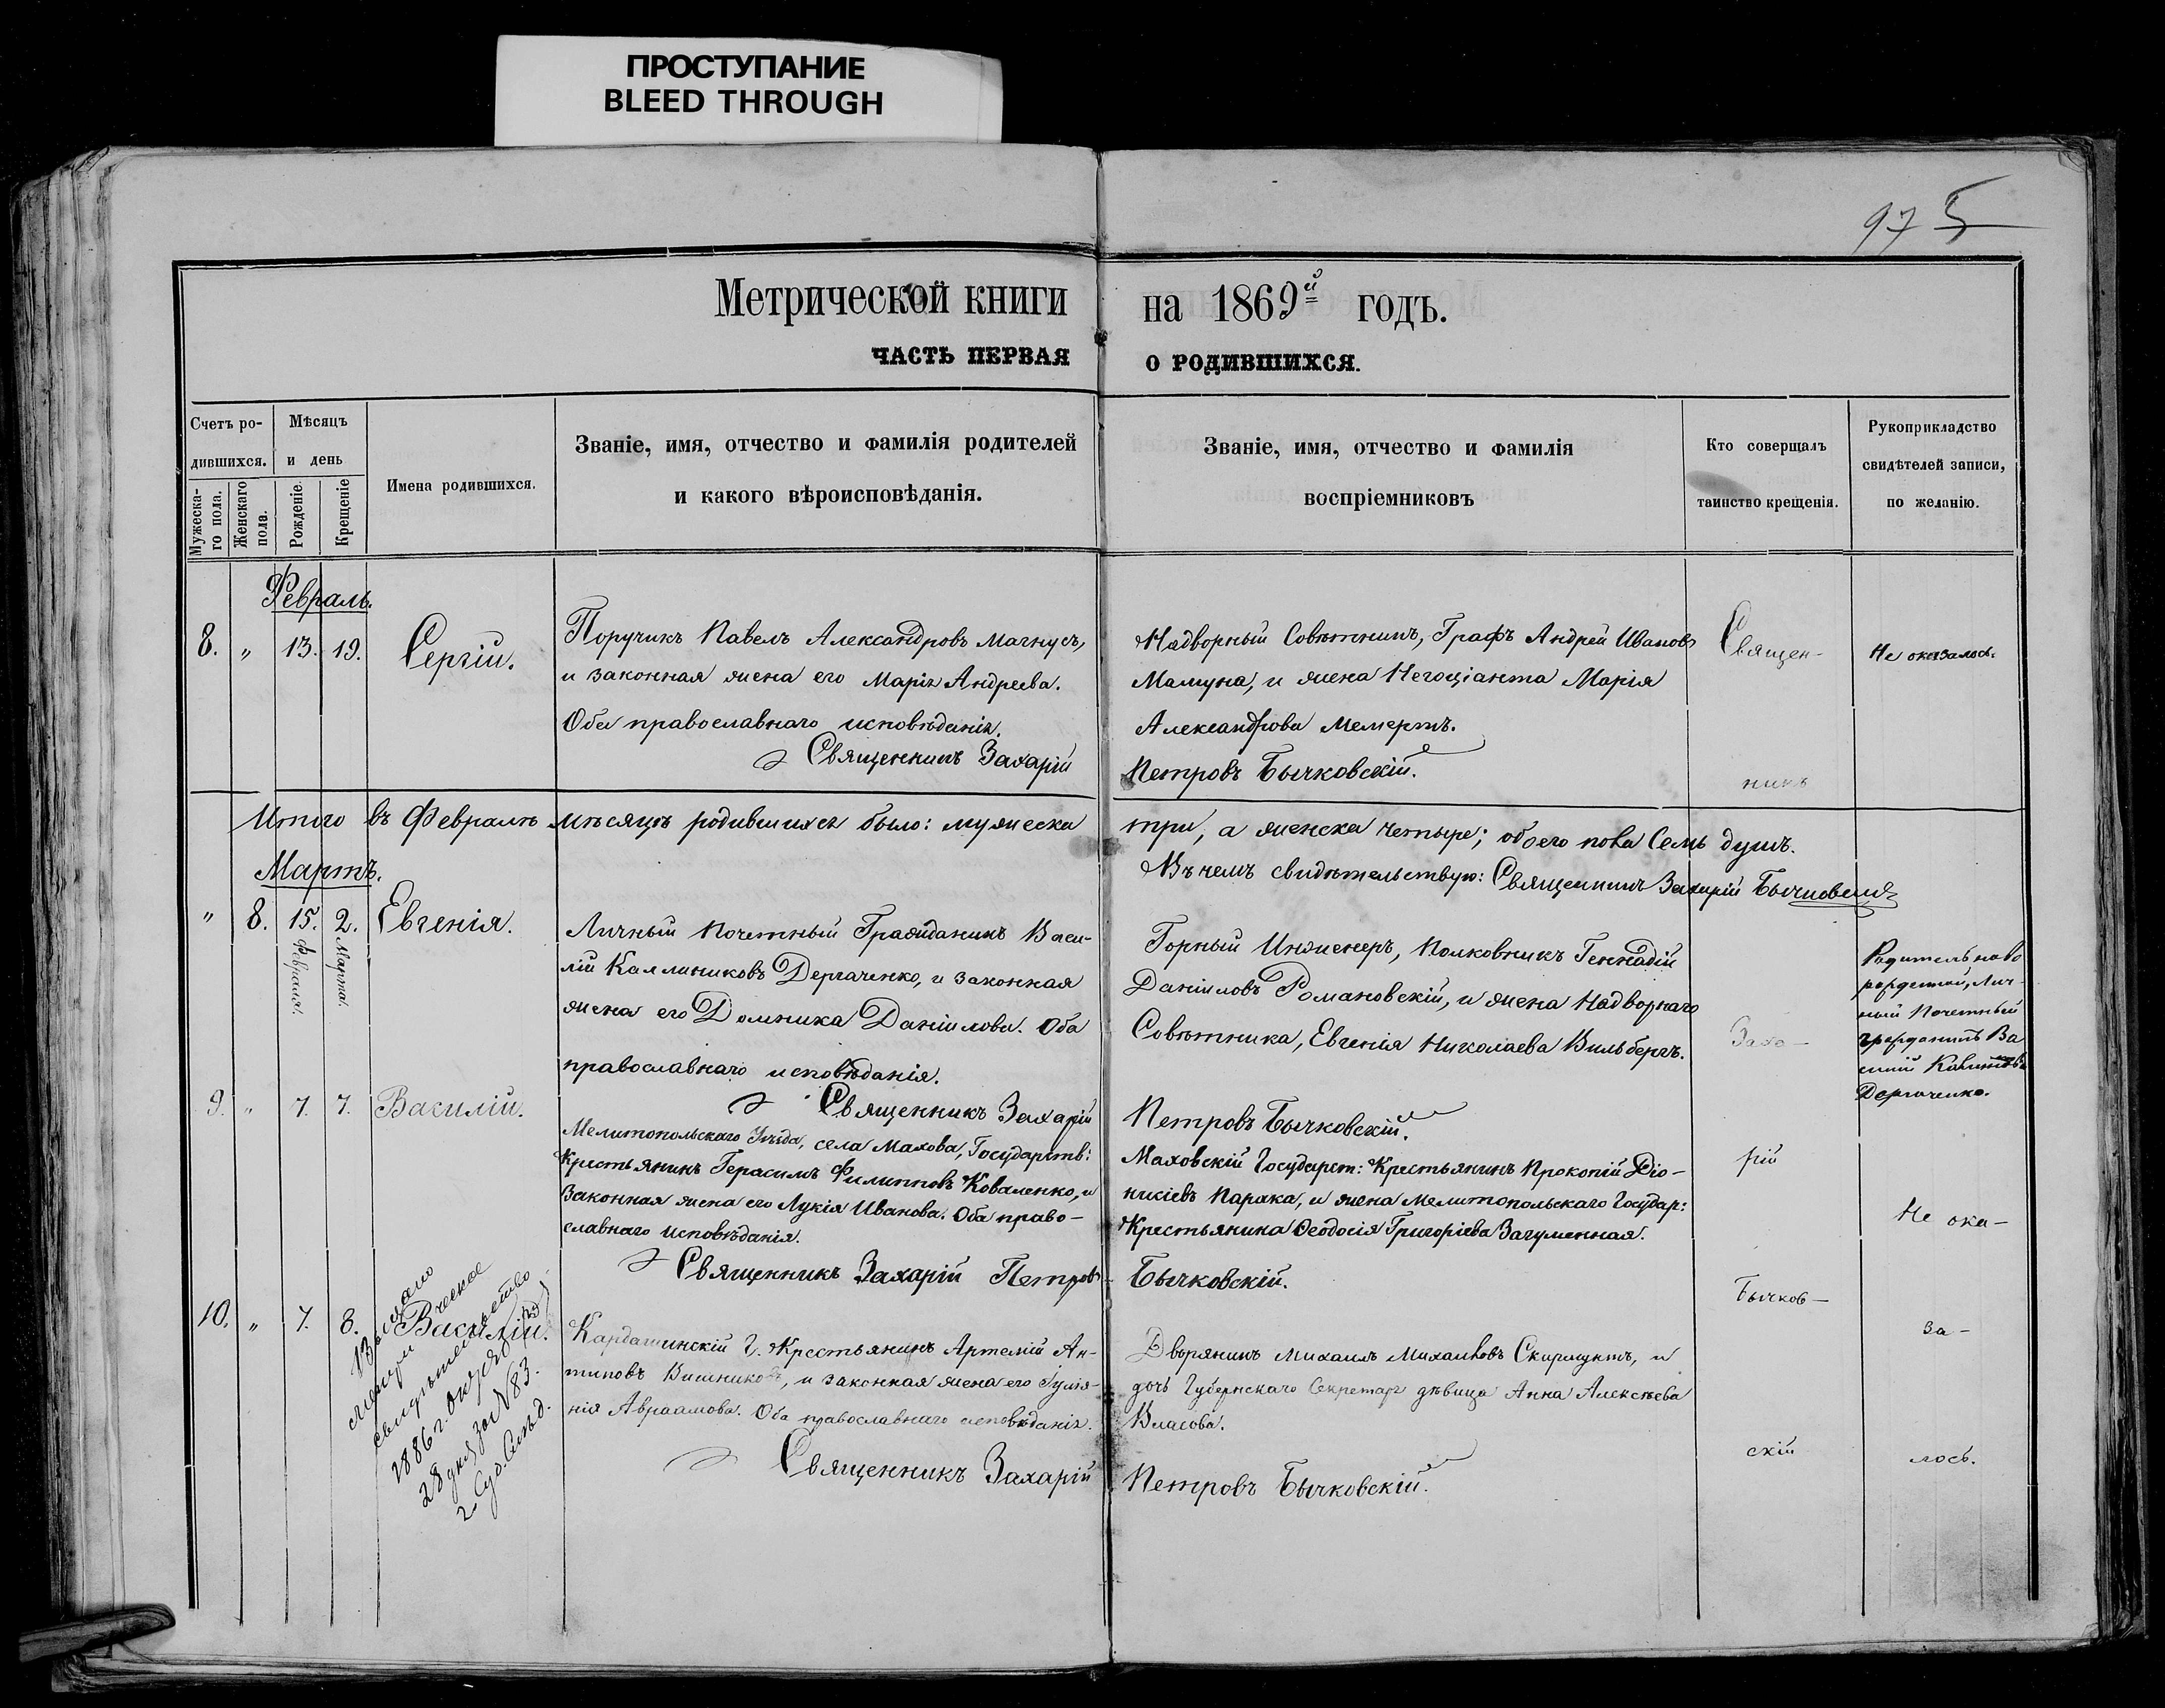 ПРОСТУПАНИЕ
BLEED THROUGH
97 5
Метрической книги на 1869й годъ.
ЧАСТЬ ПЕРВАЯ О РОДИВШИХСЯ.
Счетъ ро-
дившихся.
Мужеска-
го пола.
Женскаго
пола.
Мѣсяцъ
и день
Рожденіе.
Крещеніе
Имена родившихся.
Званіе, имя, отчество и фамилія родителей
и какого вѣроисповѣданія.
Званіе, имя, отчество и фамилія
воспріемниковъ
Кто соверщалъ
таинство крещенія.
Рукоприкладство
свидѣтелей записи,
по желанію.
Февраль.
8. " 13. 19. Сергій.
Поручикъ Павелъ Александровъ Магнусъ,
и законная жена его Марія Андреева.
Оба православнаго исповѣданія.
Священникъ Захарій
Надворный Совѣтникъ, Графъ Андрей Ивановъ
Мамуна, и жена Негоціанта Марія
Александрова Мемертъ.
Петровъ Бычковскій.
Священ-
никъ
Не оказалось.
Итого въ Февралѣ мѣсяцѣ родившихся было: мужеска три, а женска четыре; обоего пола Семь душъ.
Въ чемъ свидѣтельствую: Священникъ Захарій Бычковскій
Мартъ.
" 8. 15. 2. Евгенія.
Февраля.
Марта.
Личный Почетный Гражданинъ Васи-
лій Каллиниковъ Дергаченко, и законная
жена его Домника Даніилова. Оба
православнаго исповѣданія.
Священникъ Захарій
Горный Инженеръ, Полковникъ Геннадій
Даніиловъ Романовскій, и жена Надворнаго
Совѣтника, Евгенія Николаева Вильбергъ.
Петровъ Бычковскій.
Заха-
Родитель ново
рожденной, Лич-
ный Почетный
гражданинъ Ва
силій
Дергаченко.
9. " 7. 7. Василій.
Мелитопольскаго Уѣзда, села Махова, Государств:
Крестьянинъ Герасимъ Филипповъ Коваленко, и
законная жена его Лукія Иванова. Оба право-
славнаго исповѣданія.
Священникъ Захарій Петровъ
Маховскій Государст: Крестьянинъ Прокопій Діо-
нисіевъ Парака, и жена Мелитопольскаго Государ:
Крестьянина Ѳеодосія Григоріева Загуменная.
Бычковскій.
рій
Не ока-
10. " 7. 8. Василій.
Кардашинскій Г. Крестьянинъ Артемій Ан-
типовъ Вишниковъ, и законная жена его Іуліа-
нія Авраамова. Оба православнаго исповѣданія.
Священникъ Захарій
Дворянинъ Михаилъ Михаиловъ Скирмунтъ, и
дочь Губернскаго Секретаря дѣвица Анна Алексѣева
Власова.
Петровъ Бычковскій.
Бычков-
скій
за-
лось.
Выдано
метрическое
свидѣтельство
1886 г.
28 дня за № 183.